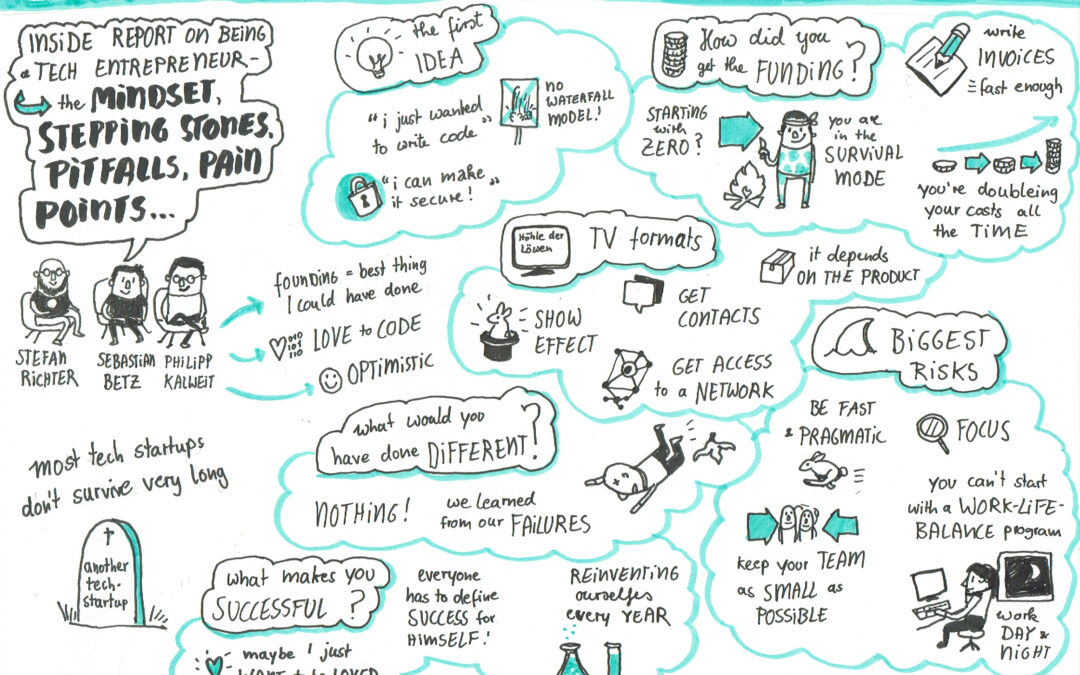 INSIDE REPORT ON BEING
a TECH ENTREPRENEUR -
the MINDSET,
STEPPING STONES,
PITFALLS, PAIN
POINTS...
STEFAN
RICHTER
SEBASTIAN
BETZ
PHILIPP
KALWEIT
founding = best thing
I could have done
010
101
110
LOVE to CODE
OPTIMISTIC
most tech startups
don't survive very long
another
tech-
startup
the first
IDEA
"i just wanted
to write code"
NO
WATERFALL
MODEL!
"i can make
it secure!"
How did you
get the FUNDING?
STARTING
with
ZERO?
you are
in the
SURVIVAL
MODE
write
INVOICES
fast enough
you're doubleing
your costs all
the TIME
it depends
ON THE PRODUCT
Höhle der
Löwen
TV formats
SHOW
EFFECT
GET
CONTACTS
GET ACCESS
to a NETWORK
what would you
have done DIFFERENT?
NOTHING!
we learned
from our FAILURES
BIGGEST
RISKS
BE FAST
& PRAGMATIC
FOCUS
you can't start
with a WORK-LIFE-
BALANCE program
keep your TEAM
as SMALL as
POSSIBLE
work
DAY &
NIGHT
what makes you
SUCCESSFUL?
everyone
has to define
SUCCESS for
HIMSELF!
REINVENTING
ourselves
every YEAR
maybe I just